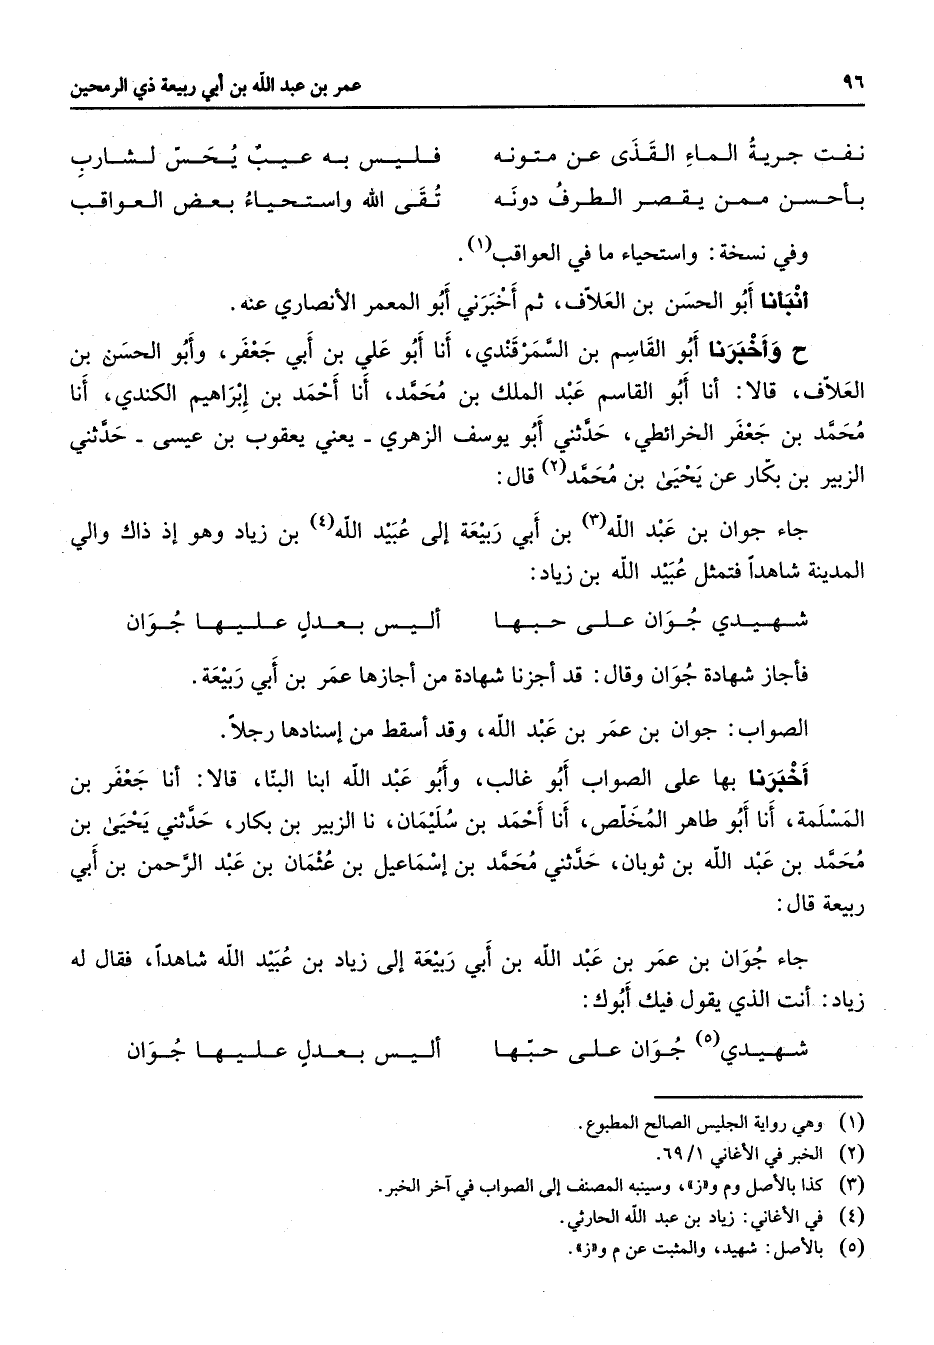 ٩٦ عمر بن عبد الله بن أبي ربيعة ذي الرمحين
نفت جريةُ الماءِ القَذَى عن متونه فليس به عيبٌ يُحَسّ لشاربِ
بأحسن ممن يقصر الطرفُ دونَه تُقَى الله واستحياءُ بعض العواقب
وفي نسخة: واستحياء ما في العواقب(١).
انْبَانا أَبُو الحسَن بن العَلاّف، ثم أَخْبَرَني أَبُو المعمر الأنصاري عنه.
ح وَأَخْبَرَنا أَبُو القَاسِم بن السَّمَرْقَندي، أَنا أَبُو عَلي بن أَبي جَعْفَر، وأَبُو الحسَن بن
العَلاّف، قالا: أنا أَبُو القاسم عَبْد الملك بن مُحَمَّد، أَنا أَحْمَد بن إبْرَاهيم الكندي، أَنا
مُحَمَّد بن جَعْفَر الخرائطي، حَدَّثني أَبُو يوسف الزهري ـ يعني يعقوب بن عيسى ـ حَدَّثني
الزبير بن بكّار عن يَحْيَىٰ بن مُحَمَّد(٢) قال:
جاء جوان بن عَبْد الله(٣) بن أَبي رَبيْعَة إلى عُبَيْد الله(٤) بن زياد وهو إذ ذاك والي
المدينة شاهداً فتمثل عُبَيْد الله بن زياد:
شهيدي جُوَان على حبها أليس بعدلٍ عليها جُوَان
فأجاز شهادة جُوَان وقال: قد أجزنا شهادة من أجازها عمَر بن أَبي رَبيْعَة.
الصواب: جوان بن عمَر بن عَبْد الله، وقد أسقط من إسنادها رجلاً.
أَخْبَرَنا بها على الصواب أَبُو غالب، وأَبُو عَبْد الله ابنا البنّا، قالا: أنا جَعْفَر بن
المَسْلَمة، أَنا أَبُو طاهر المُخَلّص، أَنا أَحْمَد بن سُلَيْمَان، نا الزبير بن بكار، حَدَّثني يَحْيَىٰ بن
مُحَمَّد بن عَبْد الله بن ثوبان، حَدَّثني مُحَمَّد بن إسْمَاعيل بن عُثْمَان بن عَبْد الرَّحمن بن أَبي
ربيعة قال:
جاء جُوَان بن عمَر بن عَبْد الله بن أَبي رَبيْعَة إلى زياد بن عُبَيْد الله شاهداً، فقال له
زياد: أنت الذي يقول فيك أَبُوك:
شهيدي(٥) جُوَان على حبّها أليس بعدلٍ عليها جُوَان
(١) وهي رواية الجليس الصالح المطبوع.
(٢) الخبر في الأغاني ١/ ٦٩.
(٣) كذا بالأصل وم و«ز»، وسينبه المصنف إلى الصواب في آخر الخبر.
(٤) في الأغاني: زياد بن عبد الله الحارثي.
(٥) بالأصل: شهيد، والمثبت عن م و«ز».